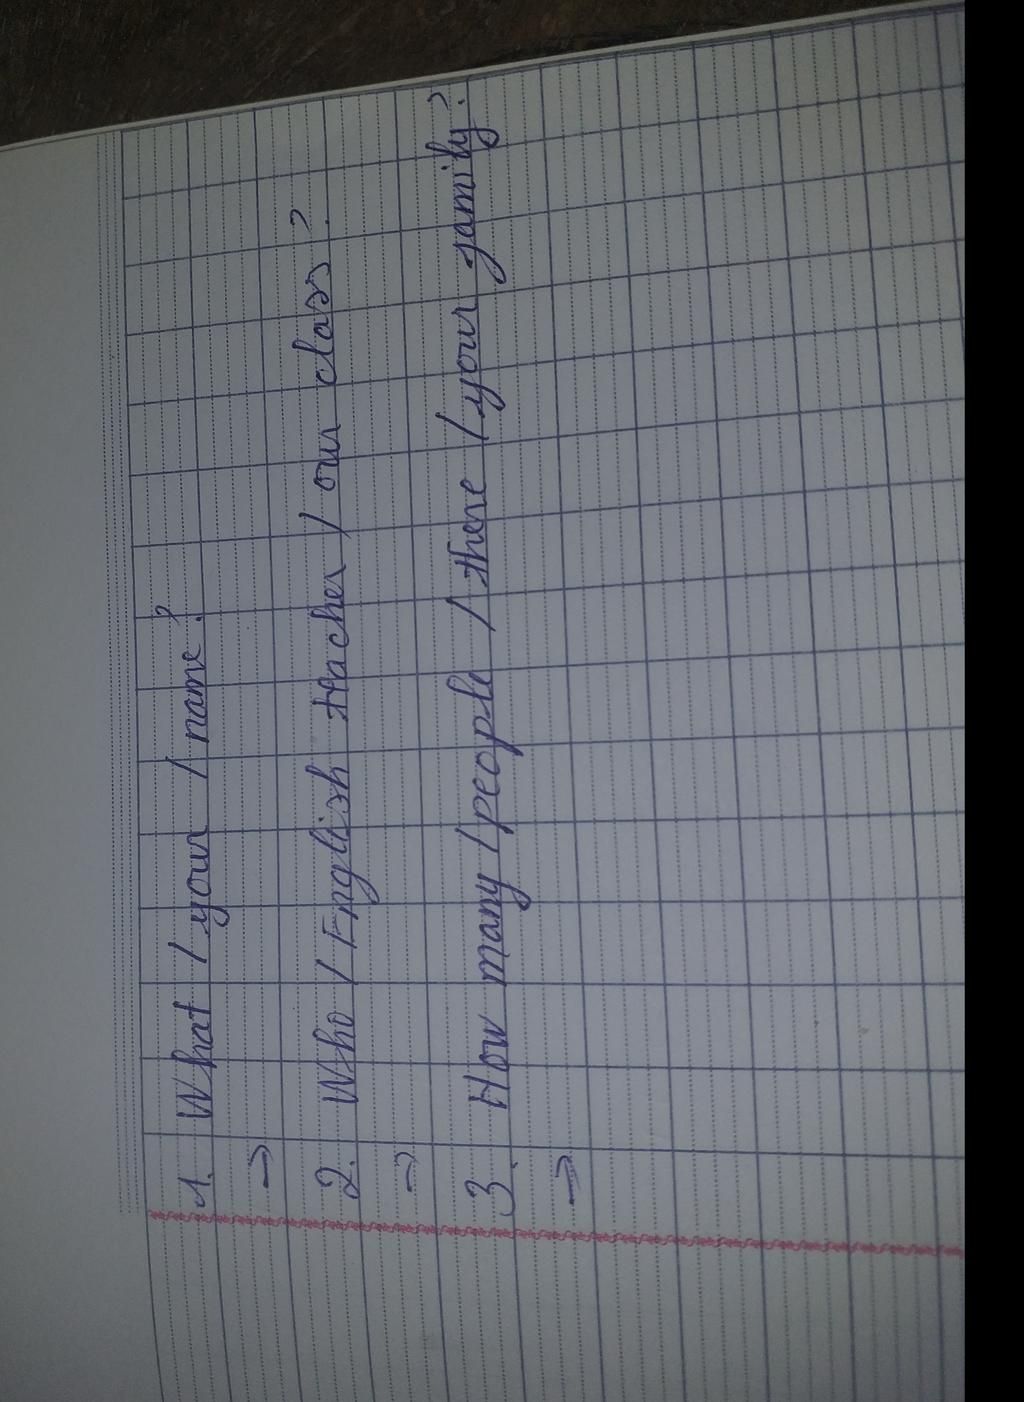 1. What / your / name?
→
2. Who / English teacher / our class?
→
3. How many / people / there / your family?
→